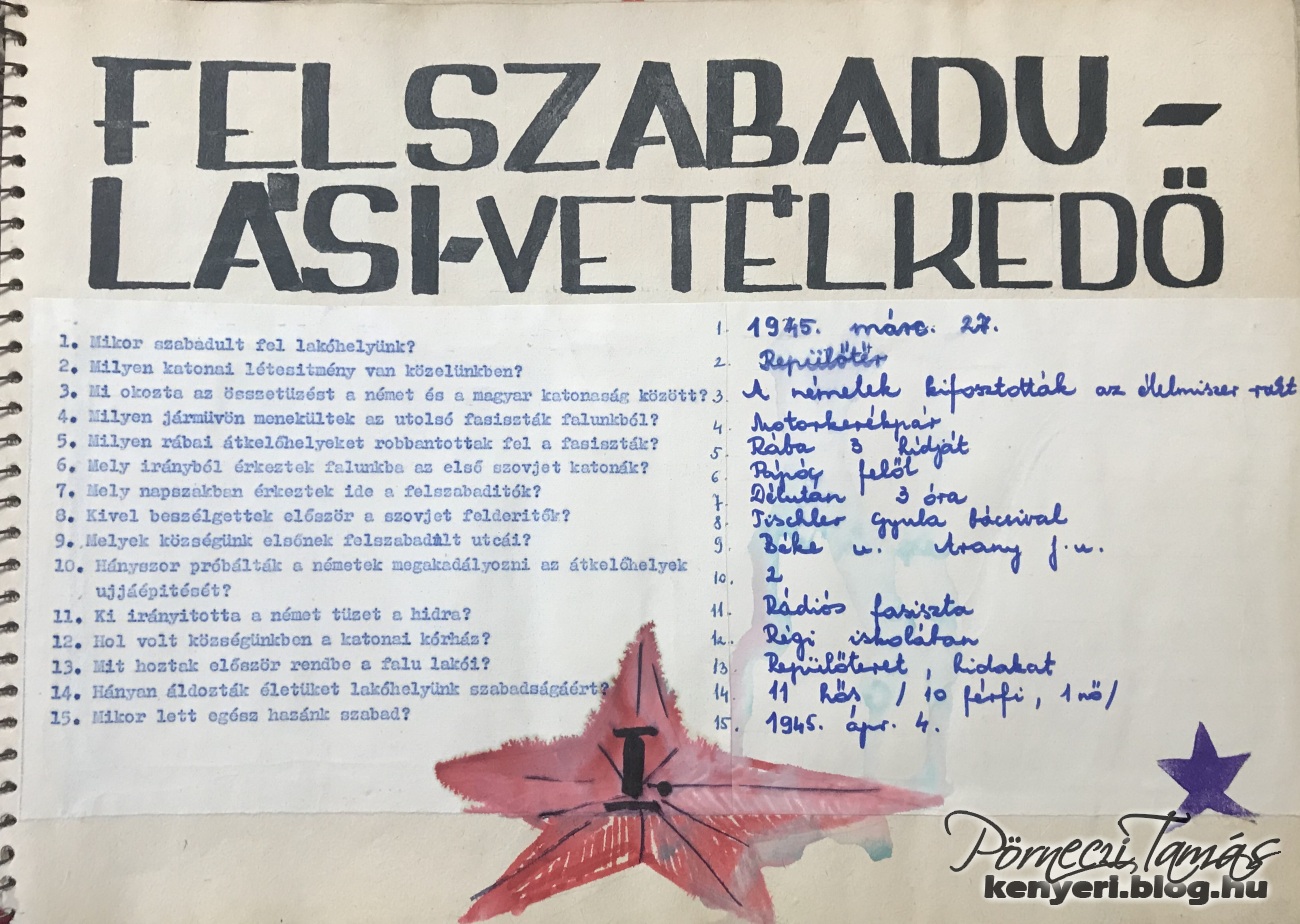 FELSZABADU-
LÁSI-VETÉLKEDŐ
1. Mikor szabadult fel lakóhelyünk?
2. Milyen katonai létesitmény van közelünkben?
3. Mi okozta az összetüzést a német és a magyar katonaság között?
4. Milyen jármüvön menekültek az utolsó fasiszták falunkból?
5. Milyen rábai átkelőhelyeket robbantottak fel a fasiszták?
6. Mely irányból érkeztek falunkba az első szovjet katonák?
7. Mely napszakban érkeztek ide a felszabaditók?
8. Kivel beszélgettek először a szovjet felderitők?
9. Melyek községünk elsőnek felszabadult utcái?
10. Hányszor próbálták a németek megakadályozni az átkelőhelyek
ujjáépitését?
11. Ki irányitotta a német tüzet a hidra?
12. Hol volt községünkben a katonai kórház?
13. Mit hoztak először rendbe a falu lakói?
14. Hányan áldozták életüket lakóhelyünk szabadságáért?
15. Mikor lett egész hazánk szabad?
1. 1945. márc. 27.
2. Repülőtér
3. A németek kifosztották az élelmiszer rakt
4. Motorkerékpár
5. Rába 3 hídját
6. Pápóc felől
7. Délután 3 óra
8. Tischler Gyula bácsival
9. Béke u. Arany J. u.
10. 2
11. Rádiós fasiszta
12. Régi iskolában
13 Repülőteret, hidakat
14 11 hős / 10 férfi, 1 nő/
15. 1945. ápr. 4.
I.
Pörneczi Tamás
kenyeri.blog.hu